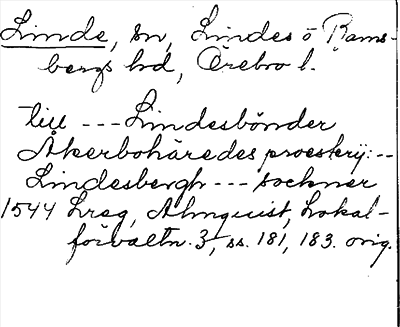 Linde, sn, Lindes o Rams-
bergs hd, Örebro l.
till --- Lindesbönder
Åkerbohäredes proesterij: --
Lindesbergh --- sockner
1544 Lreg, Almquist, Lokal-
förvaltn. 3, ss. 181, 183. orig.